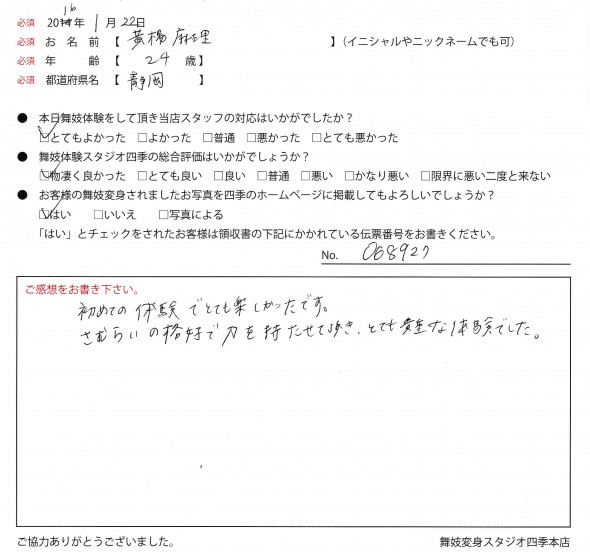 必須 2016年 1月 22日
必須 お名前【 黄楊 麻理 】(イニシャルやニックネームでも可)
必須 年 齢【 24 歳】
必須 都道府県名【 静岡 】
● 本日舞妓体験をして頂き当店スタッフの対応はいかがでしたか？
☑とてもよかった □よかった □普通 □悪かった □とても悪かった
● 舞妓体験スタジオ四季の総合評価はいかがでしょうか？
☑物凄く良かった □とても良い □良い □普通 □悪い □かなり悪い □限界に悪い二度と来ない
● お客様の舞妓変身されましたお写真を四季のホームページに掲載してもよろしいでしょうか？
☑はい □いいえ □写真による
「はい」とチェックをされたお客様は領収書の下記にかかれている伝票番号をお書きください。
No. 068927
ご感想をお書き下さい。
初めての体験でとても楽しかったです。
さむらいの格好で刀を持たせて頂き、とても貴重な体験でした。
ご協力ありがとうございました。 舞妓変身スタジオ四季本店